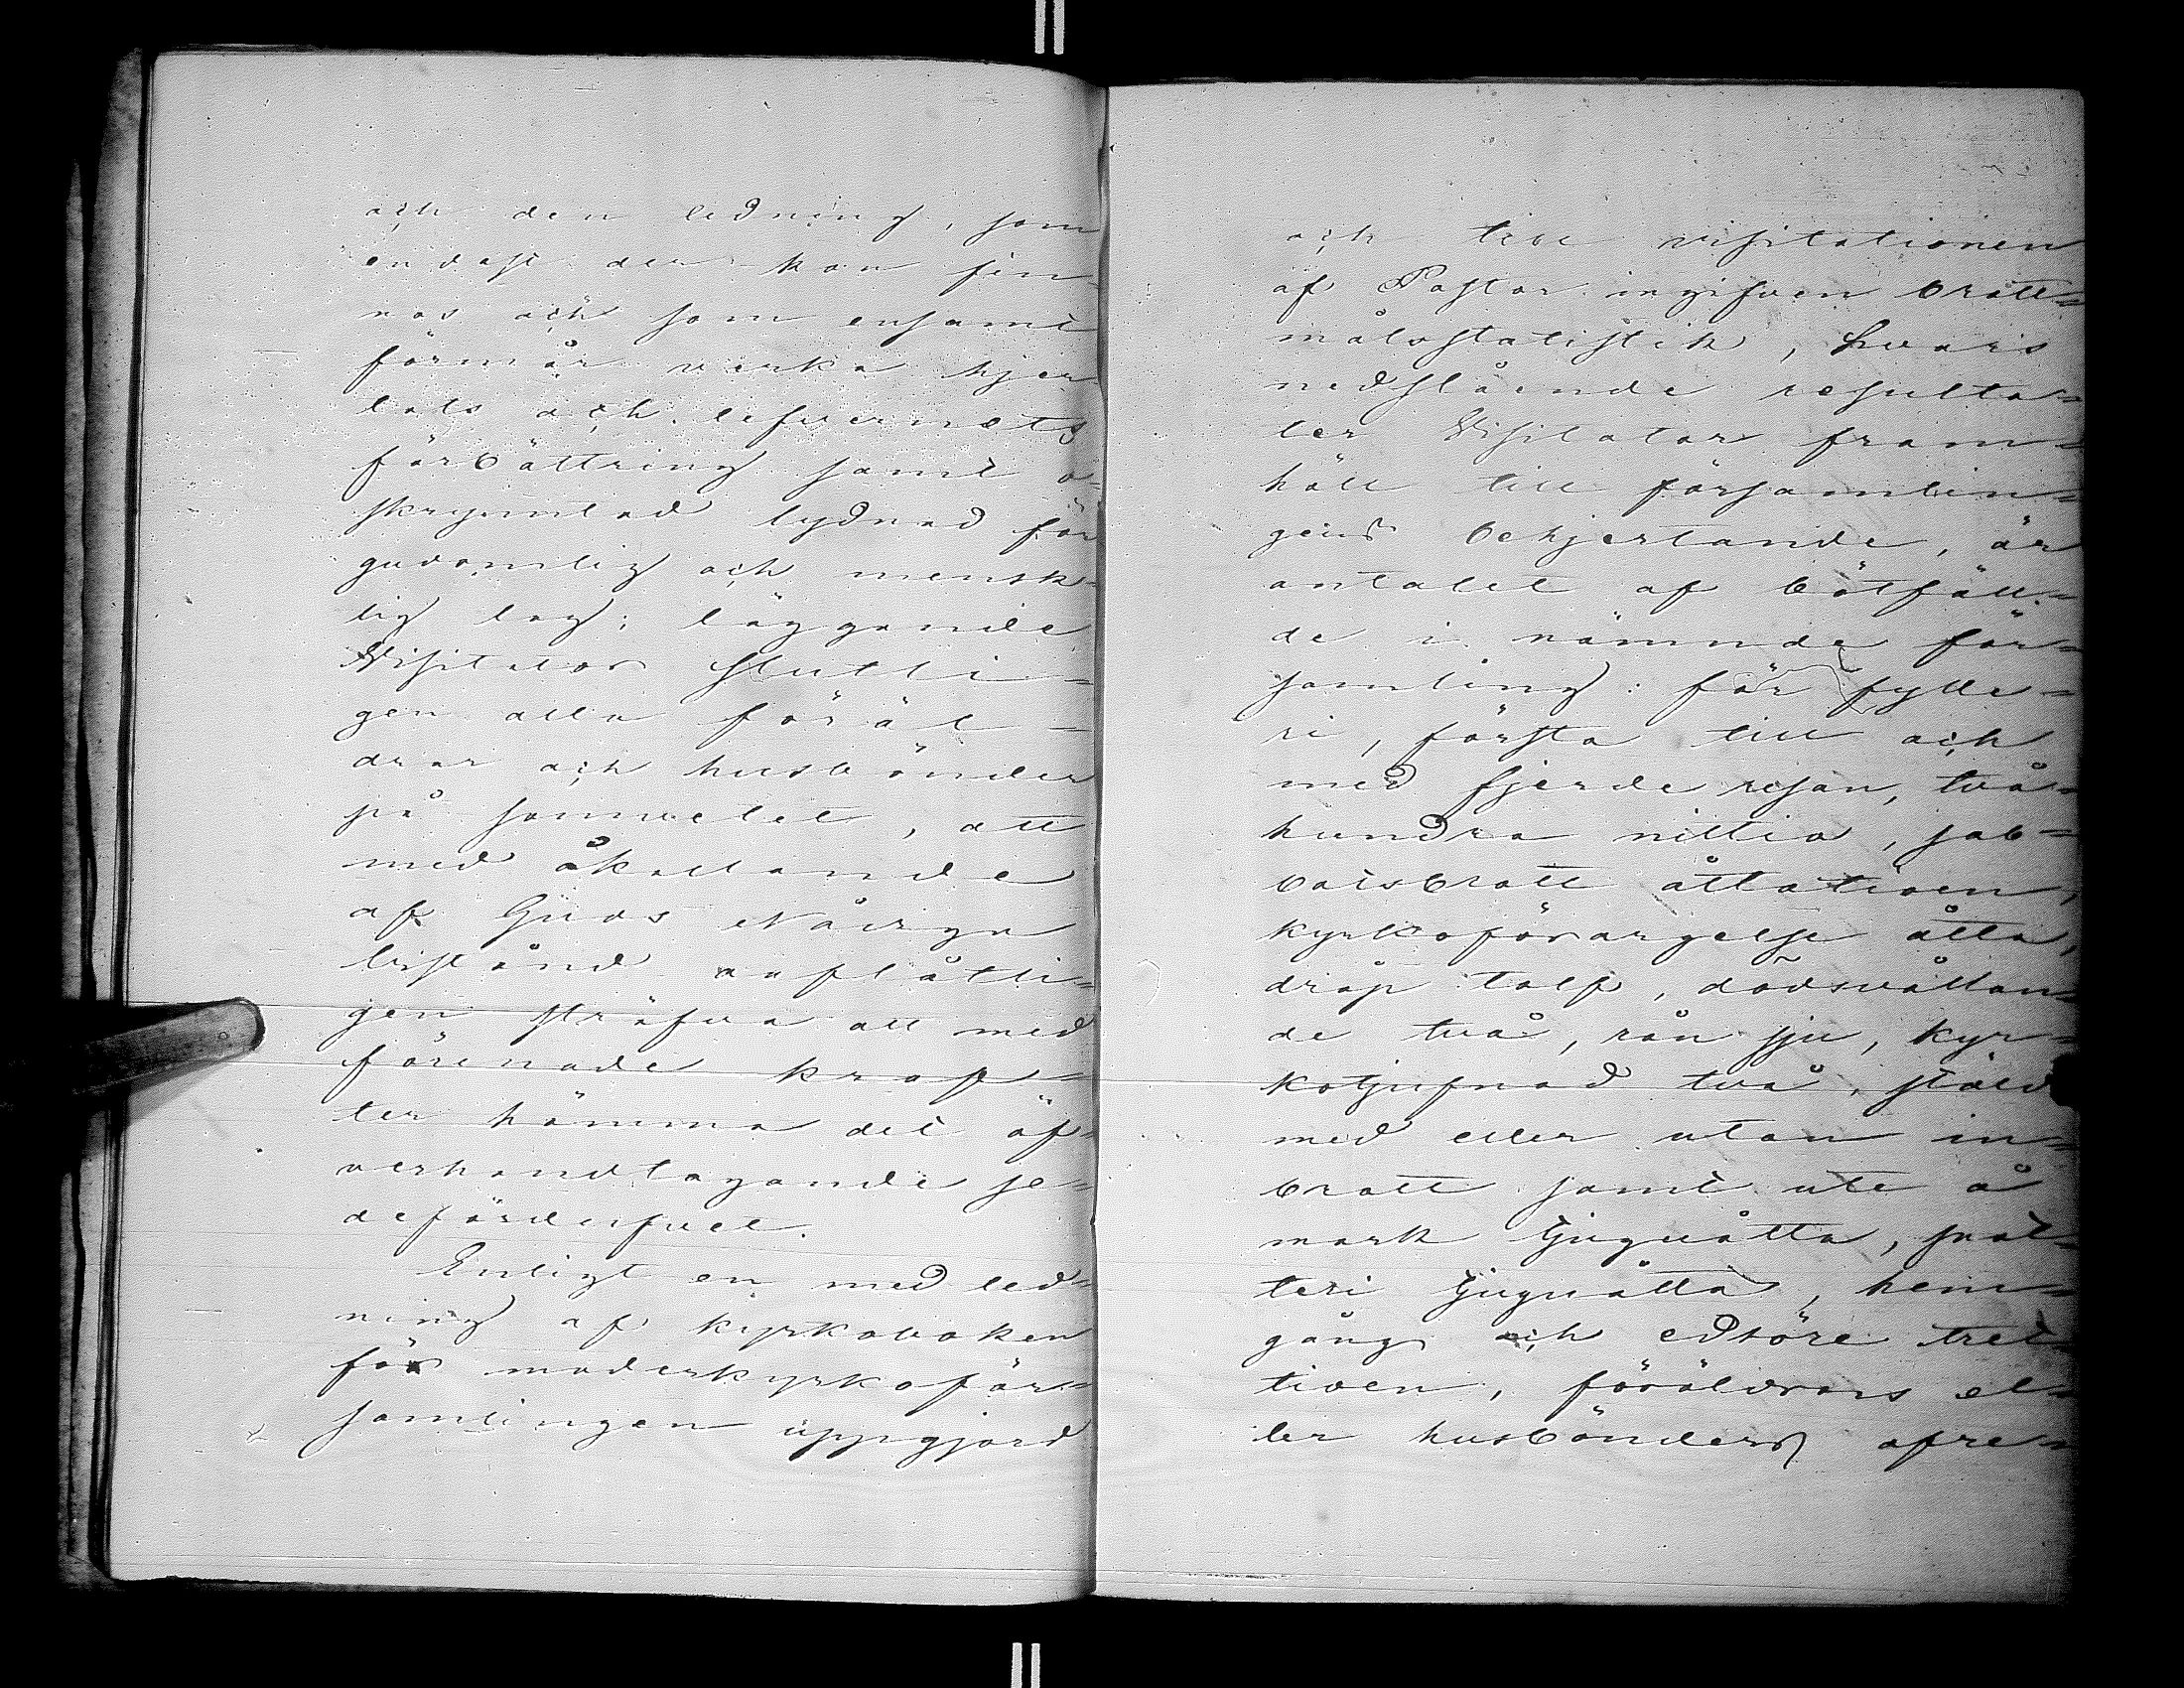 och den ledning, som
endast der kan fin-
nas och som ensamt
förmår verka hjer-
tats och lefvernets
förbättring samt o=
skrymtad lydnad för
gudomlig och mensk-
lig lag; läggande
Visitator slutli-
gen alla föräl-
drar och husbönder
på samvetet, att
med åkallande
af Guds nådiga
bistånd oaflåtli=
gen sträfva att med
förenade kraf-
ter hämma det öf-
verhandtagande se-
deförderfvet.
Enligt en med led=
ning af kyrkoboken
för moderkyrkoför=
samlingen uppgjord
och till visitationen
af Pastor ingifven brott=
målsstatistik, hvars
nedslående resulta=
ter Visitator fram=
höll till församlin=
gens behjertande, är
antalet af bötfäll=
de i nämnde för=
samling: för fylle=
ri, första till och
med fjerde resan, två=
hundra nittio, sab=
batsbrott åttatioen,
kyrkoförargelse åtta,
dråp tolf, dödsvållan=
de två, rån sju, kyr=
kotjufnad två, stöld
med eller utan in=
brott samt ute å
mark tjuguåtta, snat=
teri tjuguåtta, hem=
gång och edsöre tret=
tioen, föräldrars el=
ler husbönders ofre=